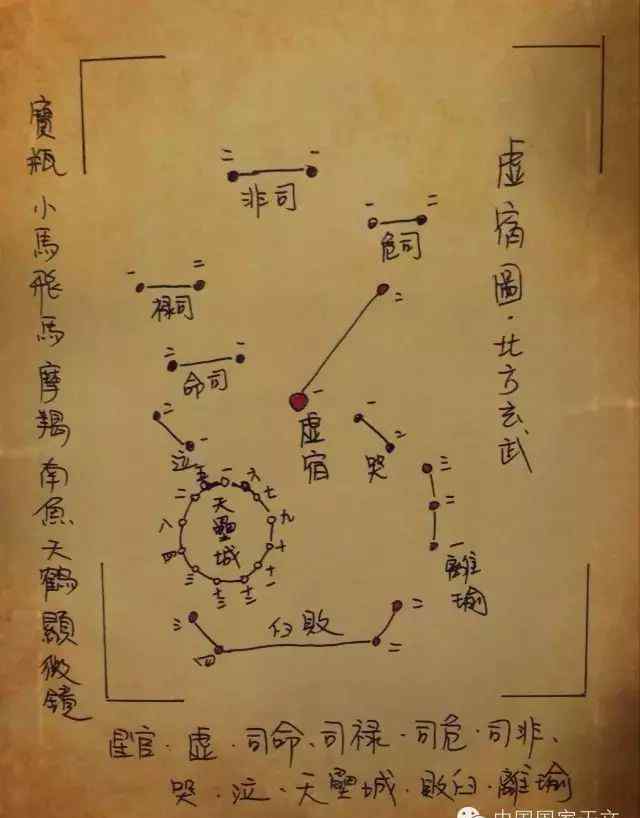 虛宿圖·北方玄武
二 一
非司
一 二
危司
一 二
禄司
二 一
命司
二
一
虛宿
二 一
泣
一 二
哭
三 二 一
離瑜
五 一 六 七 九 十 十一 十二 十三 三 四 八 二
天壘城
三 四 二 二
臼敗
寶瓶 小馬 飛馬 摩羯 南魚 天鶴 顯微鏡
星官·虛·司命、司禄·司危·司非、
哭·泣·天壘城·敗臼·離瑜
中国国家天文